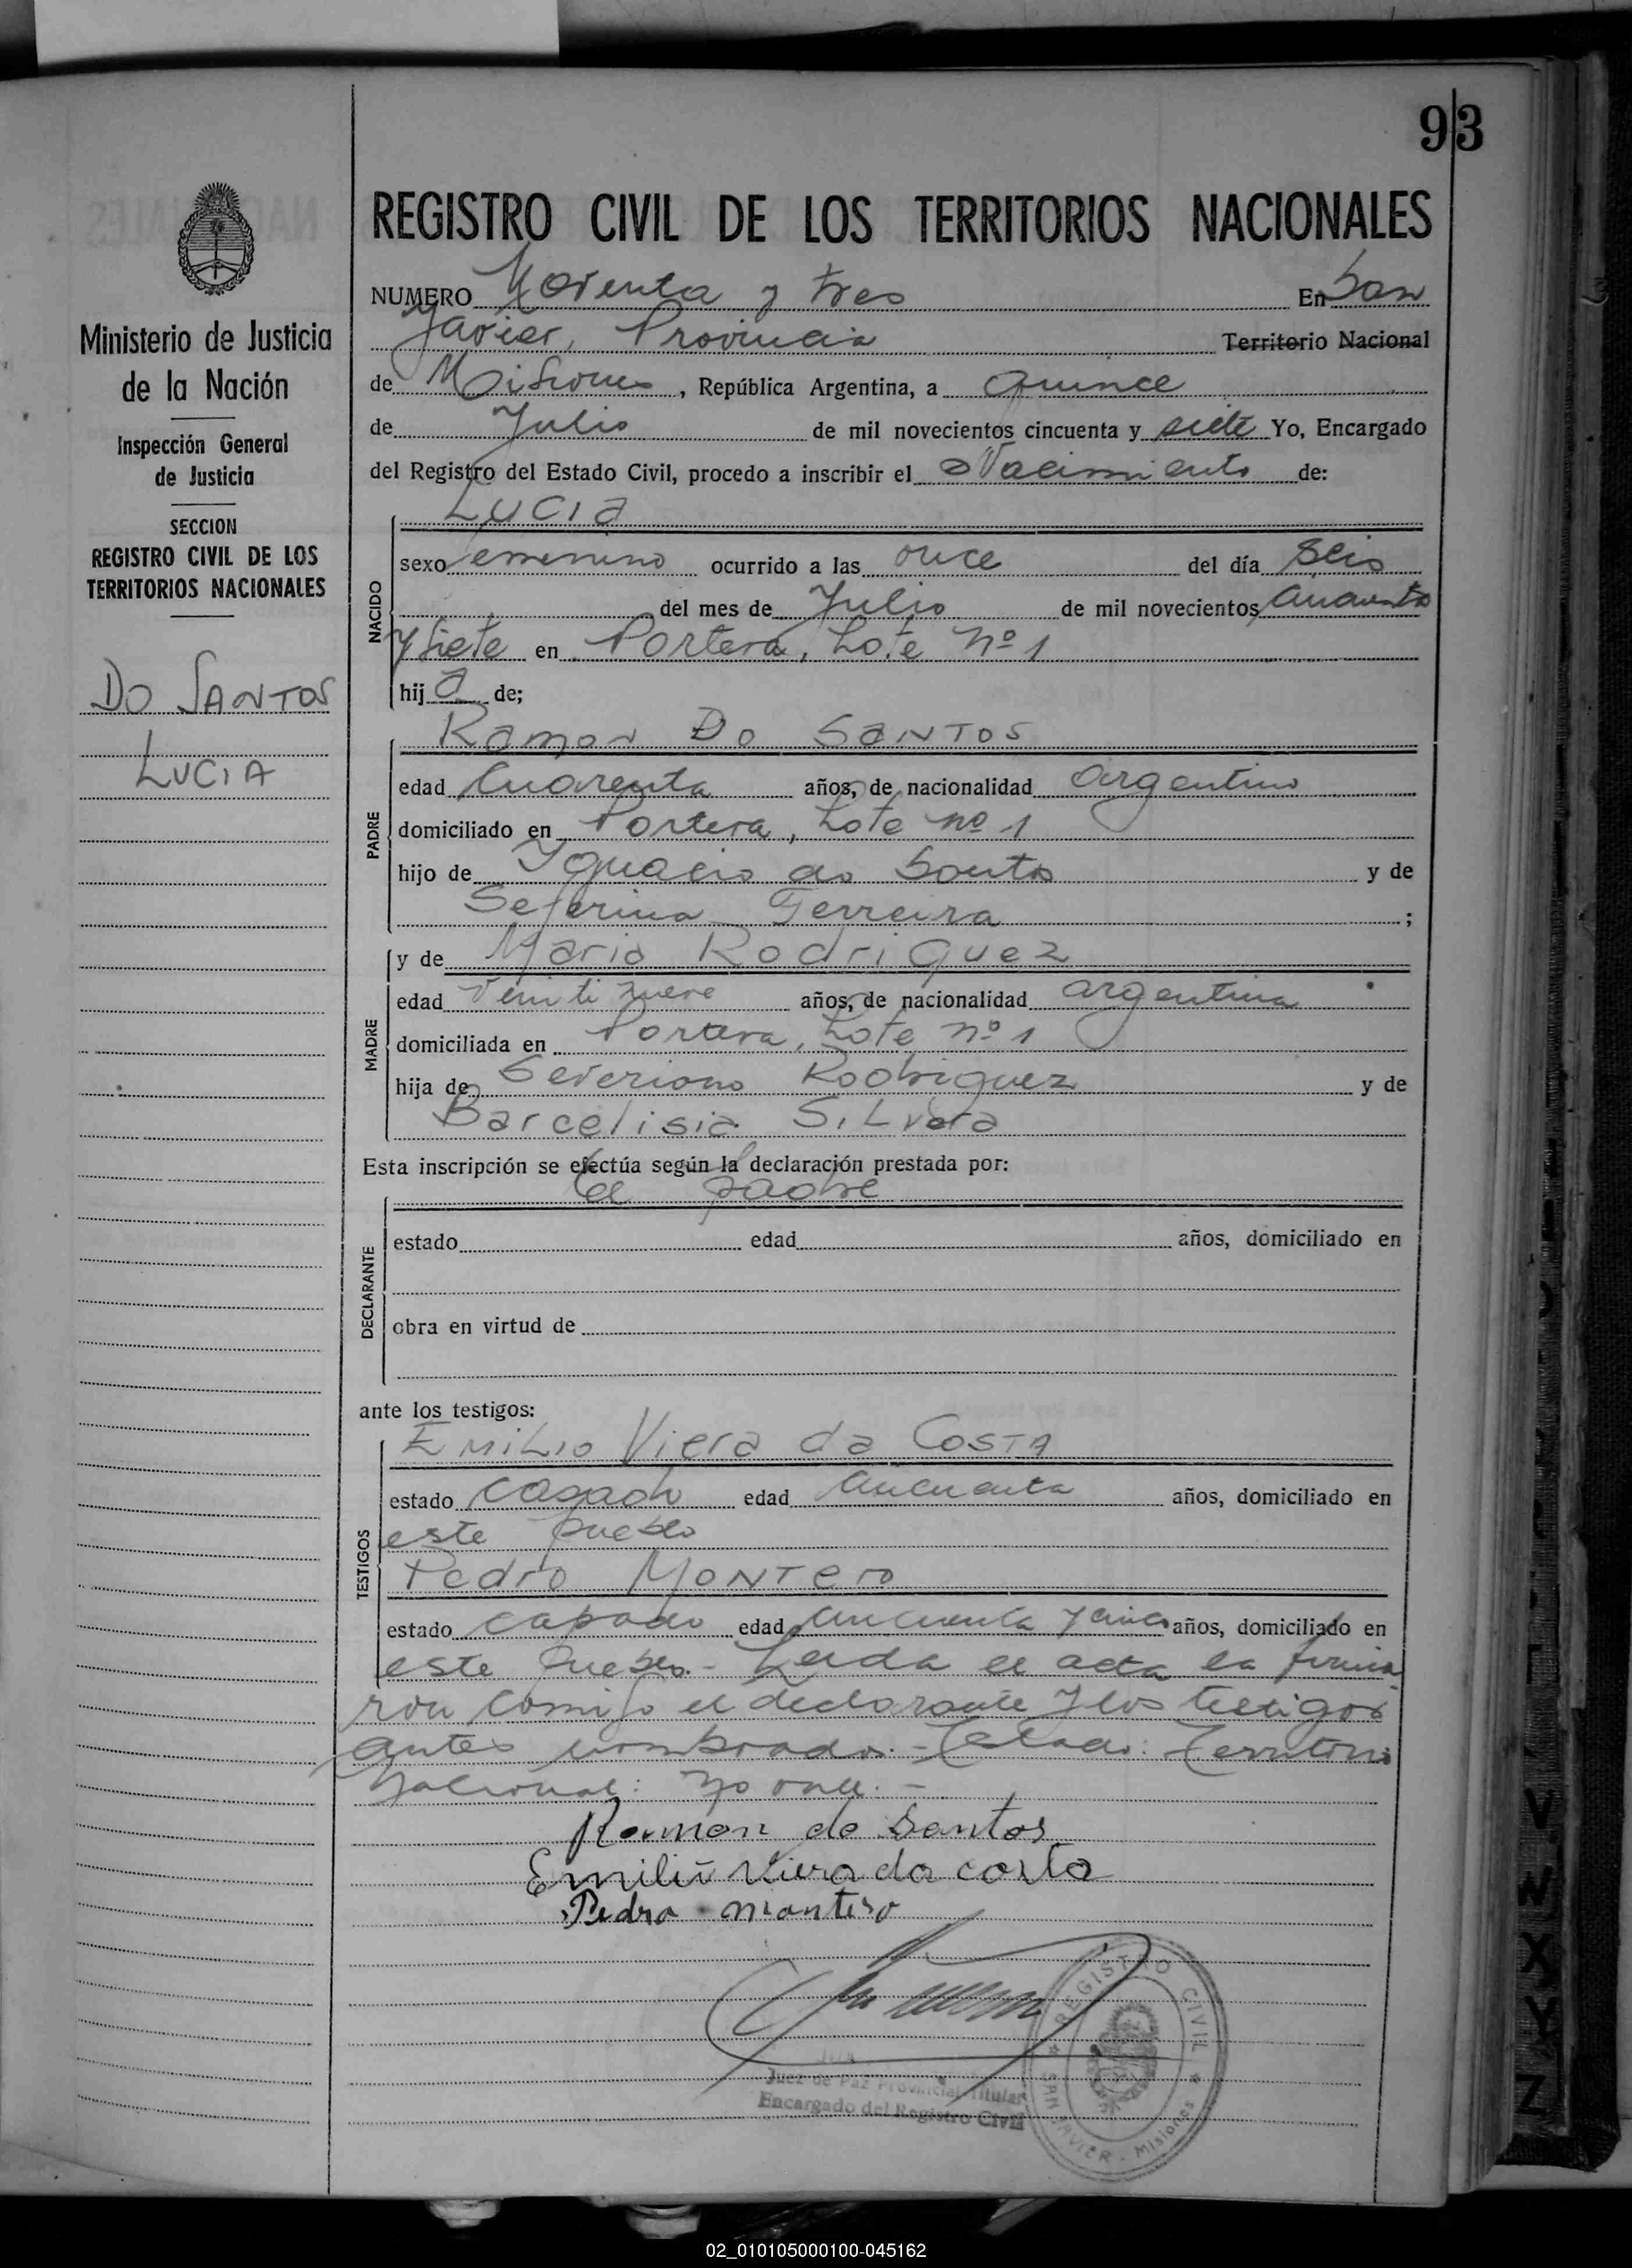 93
REGISTRO CIVIL DE LOS TERRITORIOS NACIONALES
Ministerio de Justicia
de la Nación
Inspección General
de Justicia
SECCION
REGISTRO CIVIL DE LOS
TERRITORIOS NACIONALES
DO SANTOS
LUCIA
NUMERO Noventa y tres En San
Javier, Provincia Territorio Nacional
de Misiones, República Argentina, a quince
de Julio de mil novecientos cincuenta y siete Yo, Encargado
del Registro del Estado Civil, procedo a inscribir el Nacimiento de:
LUCIA
NACIDO
sexo femenino ocurrido a las once del día seis
del mes de Julio de mil novecientos
y siete en Portera, Lote nº 1
hij a de;
Ramon Do SANTOS
PADRE
edad Cuarenta años, de nacionalidad argentino
domiciliado en Portera, Lote nº 1
hijo de Ygnacio do Santos y de
Seferina Ferreira ;
y de Maria Rodriguez
MADRE
edad Veinti nueve años, de nacionalidad argentina
domiciliada en Portera, Lote nº 1
hija de Severiano Rodriguez y de
Barcelisia SiLvera
Esta inscripción se efectúa según la declaración prestada por:
el padre
DECLARANTE
estado edad años, domiciliado en
obra en virtud de
ante los testigos:
EMiLio Viera da COSTA
TESTIGOS
estado casado edad cincuenta años, domiciliado en
este pueblo
Pedro MONTERO
estado casado edad cincuenta y cinco años, domiciliado en
este pueblo.- Leida el acta la firma
ron comigo el declarante y los testigos
antes nombrados.- Testado: Territorio
Nacional: no vale.-
Ramon do Santos
Emilio Viera da costa
Pedro montero
Juez de Paz Provincial Titular
Encargado del Registro Civil
REGISTRO CIVIL
SAN JAVIER - Misiones
V
W
X
Y
Z
02_010105000100-045162